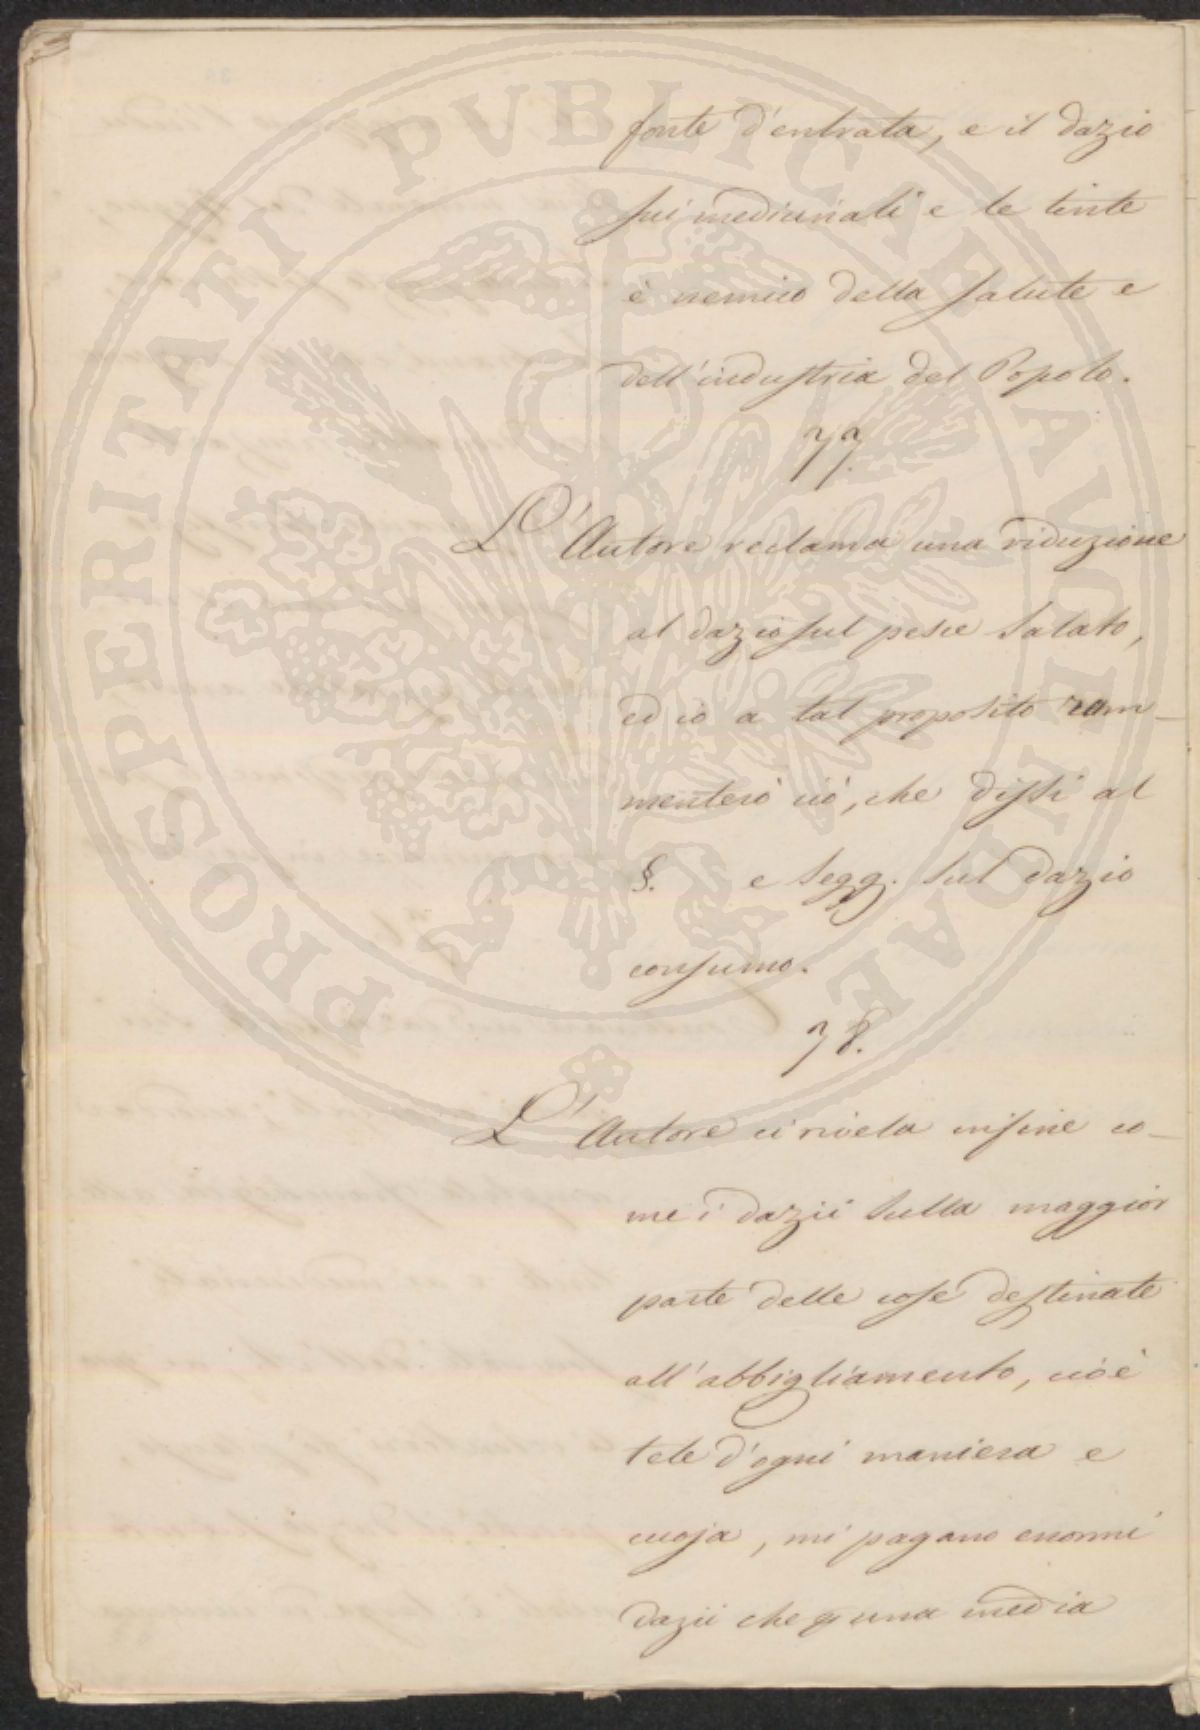 fonte d'entrata, e il dazio
sui medicinali e le tinte
è nemico della salute e
dell'industria del Popolo.
77.
L'Autore reclama una riduzione
al dazio sul pesce salato,
ed io a tal proposito ram-
menterò ciò, che dissi al
§. e segg. sul dazio
consumo.
78.
L'Autore ci rivela infine co-
me i dazii sulla maggior
parte delle cose destinate
all'abbigliamento, cioè
tele d'ogni maniera e
cuoja, mi pagano enormi
dazii che una media
PROSPERITATI PVBLICAE AVGENDAE